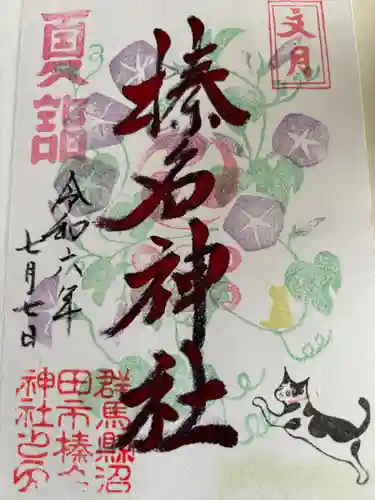 文月
夏詣
榛名神社
令和六年
七月七日
群馬縣沼
田市榛名
神社之印